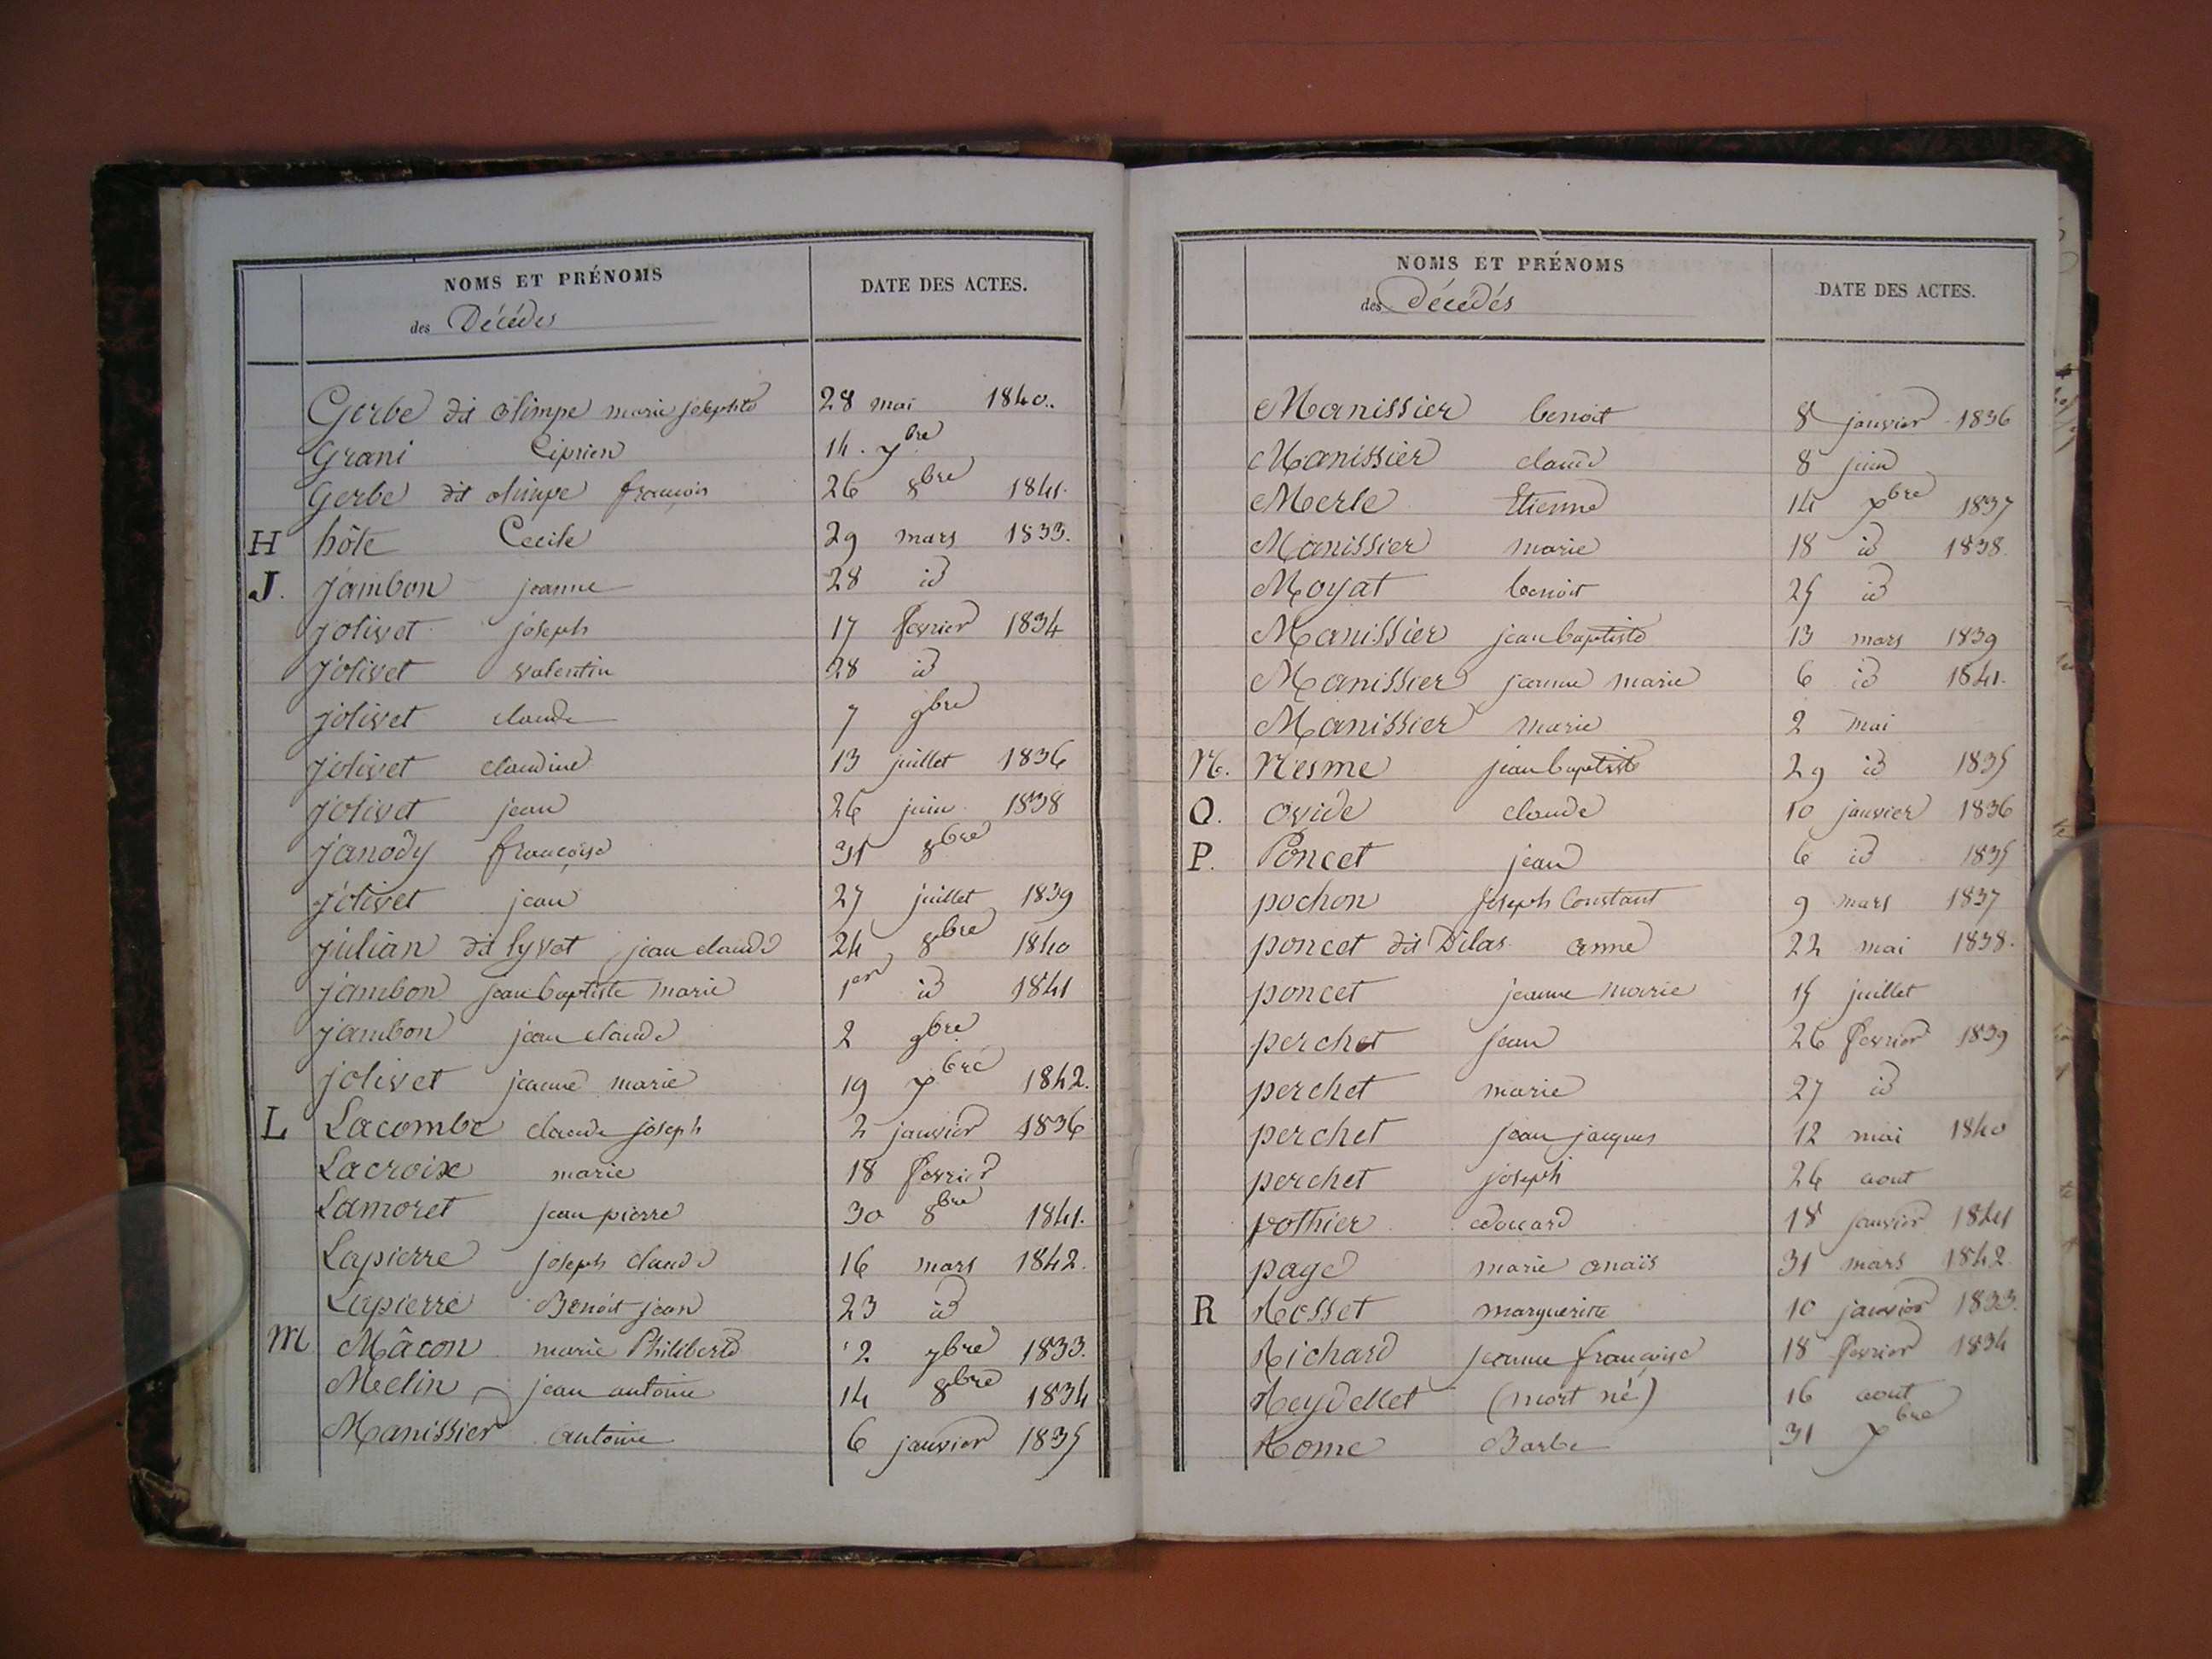 NOMS ET PRÉNOMS
des Décédés
DATE DES ACTES.
Gerbe dit olimpe marie josephte 28 mai 1840.
Grani Ciprien 14. 7bre
Gerbe dit olimpe françois 26 8bre 1841.
H hôte Cecile 29 mars 1833.
J. jambon jeanne 28 id
jolivet joseph 17 fevrier 1834
jolivet valentin 28 id
jolivet claude 7 9bre
jolivet claudine 13 juillet 1836
jolivet jean 26 juin 1838
janody françoise 31 8bre
jolivet jean 27 juillet 1839
julian dit lyvet jean claude 24 8bre 1840
jambon jean baptiste marie 1er id 1841
jambon jean claude 2 9bre
jolivet jeanne marie 19 Xbre 1842.
L Lacombe claude joseph 2 janvier 1836
Lacroix marie 18 fevrier
Lamoret jean pierre 30 8bre 1841.
Lapierre joseph claude 16 mars 1842.
Lapierre Benoit jean 23 id
M Mâcon marie Philiberte 2 7bre 1833.
Meclin jean antoine 14 8bre 1834
Manissier antoine 6 janvier 1835
NOMS ET PRÉNOMS
des Décédés
DATE DES ACTES.
Manissier benoit 8 janvier 1836
Manissier claude 8 juin
Merle Etienne 14 Xbre 1837
Manissier marie 18 id 1838.
Moyat benoit 25 id
Manissier jean baptiste 13 mars 1839
Manissier jeanne marie 6 id 1841.
Manissier marie 2 mai
N. Nesme jean baptiste 29 id 1835
O. ovide claude 10 janvier 1836
P. Poncet jean 6 id 1835
pochon joseph Constant 9 mars 1837
poncet dit Dilas anne 22 mai 1838.
poncet jeanne marie 15 juillet
perchet jean 26 fevrier 1839
perchet marie 27 id
perchet jean jacques 12 mai 1840
perchet joseph 26 aout
pothier edouard 18 janvier 1841
page marie anaïs 31 mars 1842.
R Rosset marguerite 10 janvier 1833.
Richard jeanne françoise 18 fevrier 1834
Reydellet (mort né) 16 aout
Rome Barbe 31 Xbre